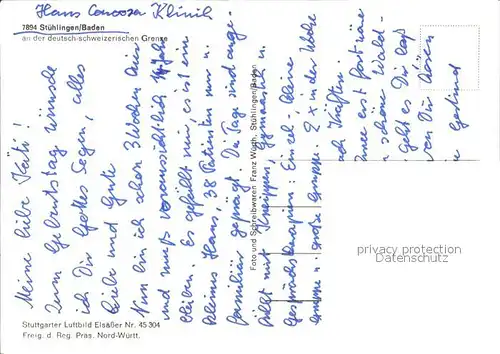 Hans Carossa Klinik
7894 Stühlingen/Baden
an der deutsch-schweizerischen Grenze
Meine liebe Käti!
Zum Geburtstag wünsche
ich Dir Gottes Segen, alles
Liebe und Gute
Nun bin ich schon 3 Wochen hier
und muß voraussichtlich Jahr
bleiben. Es gefällt mir, es ist ein
kleines Haus, 38 Patienten nur u.
familiär geprägt. Die Tage sind ange-
füllt mit Kneippen, Gymnastik u.
Gesprächstherapien: Einzel-, kleine
Gruppe u große Gruppe. 2 x in der Woche
nach Kräften.
eine erst
schöne Wald-
geht es Dir
von Dir hören
Gertrud
Foto und Schreibwaren Franz Würth, Stühlingen/Baden
privacy protection
Datenschutz
Stuttgarter Luftbild Elsäßer Nr. 45 304
Freig. d. Reg. Präs. Nord-Württ.